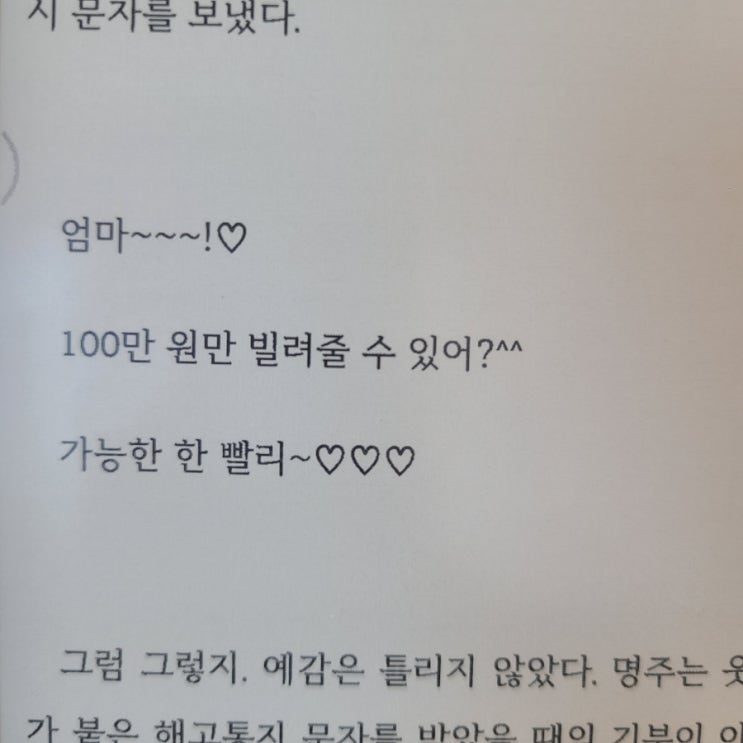 시 문자를 보냈다.
엄마~~~!♡
100만 원만 빌려줄 수 있어?^^
가능한 한 빨리~♡♡♡
그럼 그렇지. 예감은 틀리지 않았다. 명주는 웃
가 붙은 해고통지 문자를 받았을 때의 기분이 이